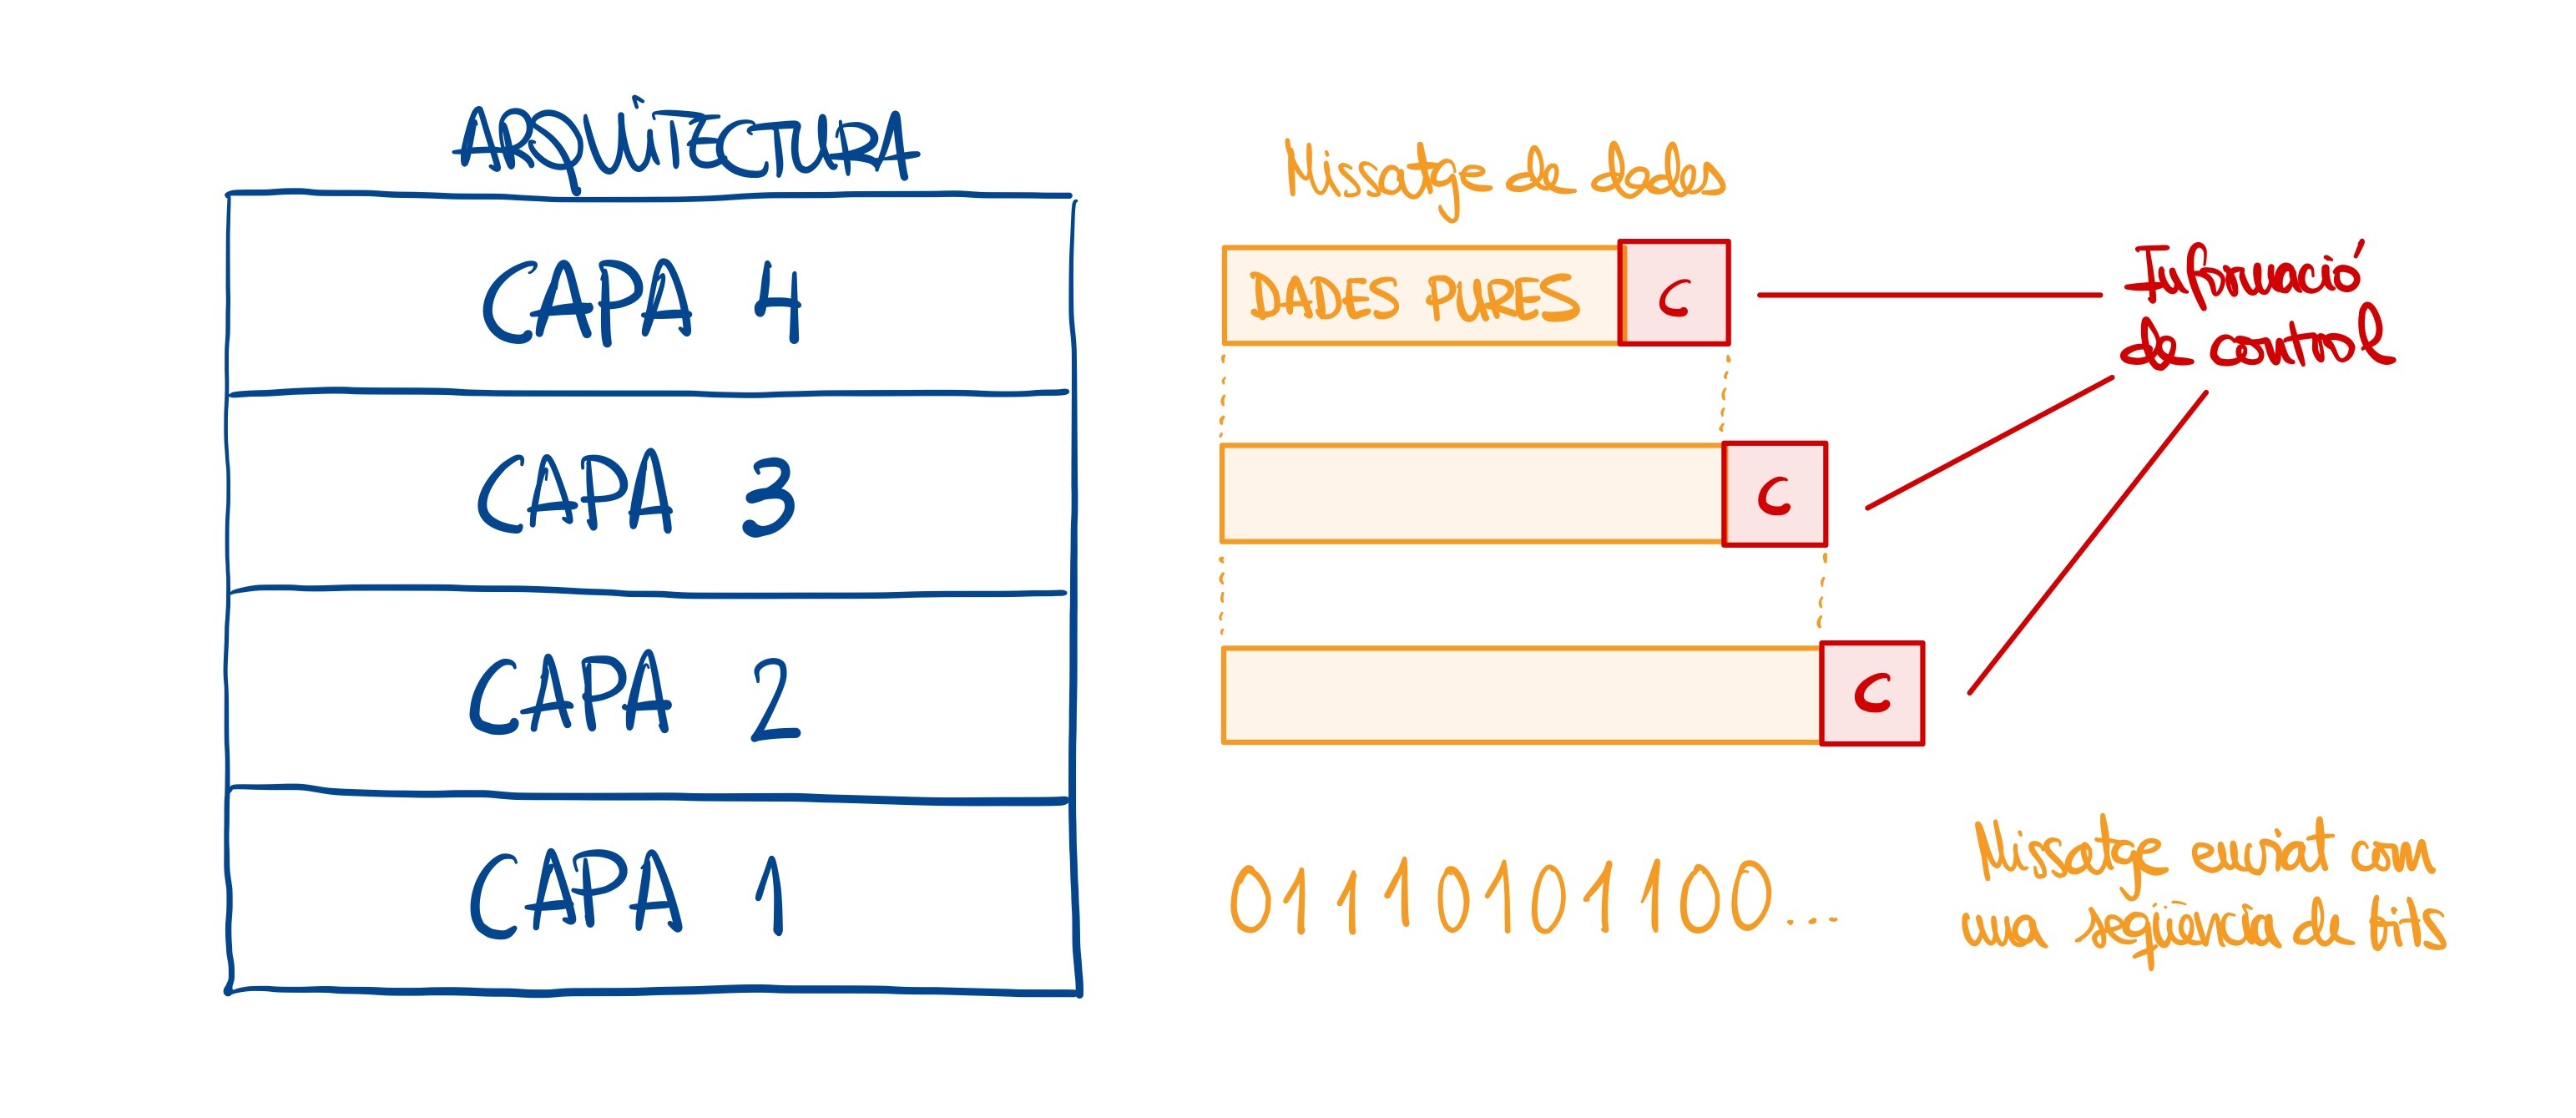 ARQUITECTURA
CAPA 4
CAPA 3
CAPA 2
CAPA 1
Missatge de dades
DADES PURES C
C
C
Informació
de control
01110101100...
Missatge enviat com
una seqüència de bits